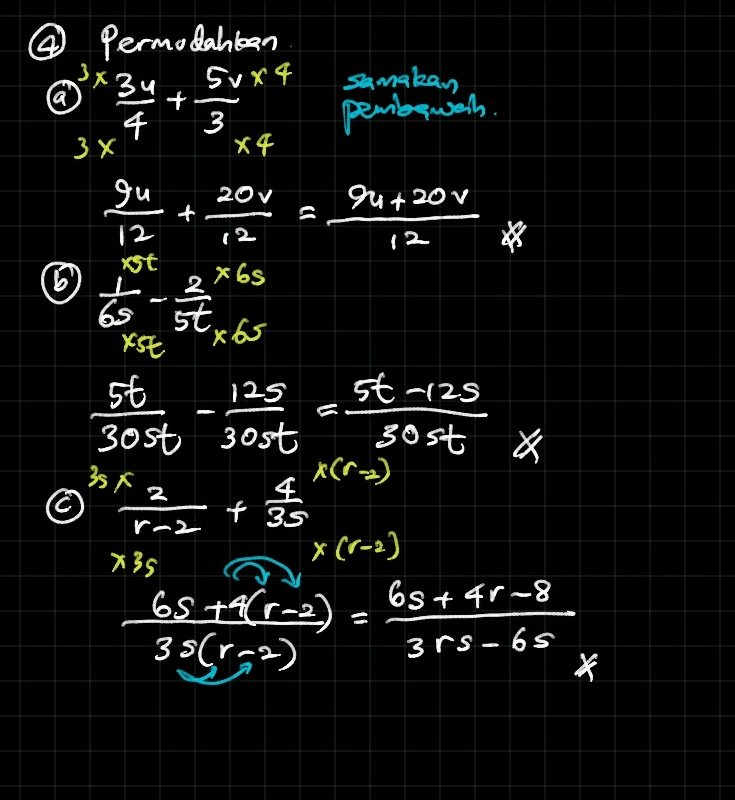 ④ Permudahkan
ⓐ 3× 3u/4 ×3 + 5v/3 ×4 ×4
samakan
pembawah.
9u/12 + 20v/12 = (9u+20v)/12
ⓑ 1/6s ×5t ×5t - 2/5t ×6s ×6s
5t/30st - 12s/30st = (5t-12s)/30st
ⓒ 3s× 2/(r-2) ×3s + 4/3s ×(r-2) ×(r-2)
(6s+4(r-2))/(3s(r-2)) = (6s+4r-8)/(3rs-6s)